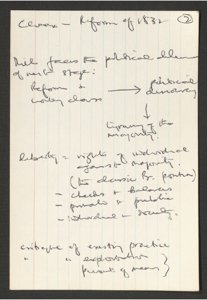 Climax - Reform of 1832 ②
Mill faces the political dilemma
of next stage:
Reform + → political
democracy
↓
tyranny of the
majority.
liberty = rights of individual
against the majority.
(the classic Br. position)
- checks + balances
- private + public
- individual - society.
critique of existing practice
" " exploitation
pursuit of